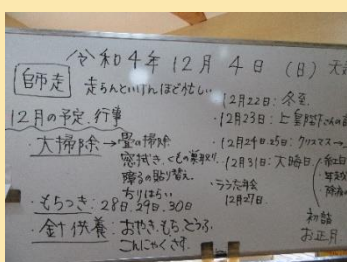 令和4年12月4日(日)
師走 走らんといけんほど忙しい
12月の予定、行事
・大掃除→畳の掃除
窓拭き、くもの巣取り
障子の貼り替え
ちりはらい
・もちつき:28日、29日、30日
・針供養:おやき、もち、とうふ、
こんにゃくさす。
・12月22日:冬至
・12月23日:上皇陛下さんの
・12月24日・25日:クリスマス
・12月31日:大晦日
12月27日
初詣
お正月